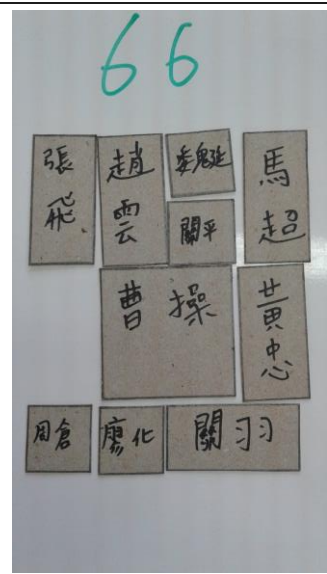 66
張飛
趙雲
魏延
馬超
關平
曹操
黃忠
周倉
廖化
關羽